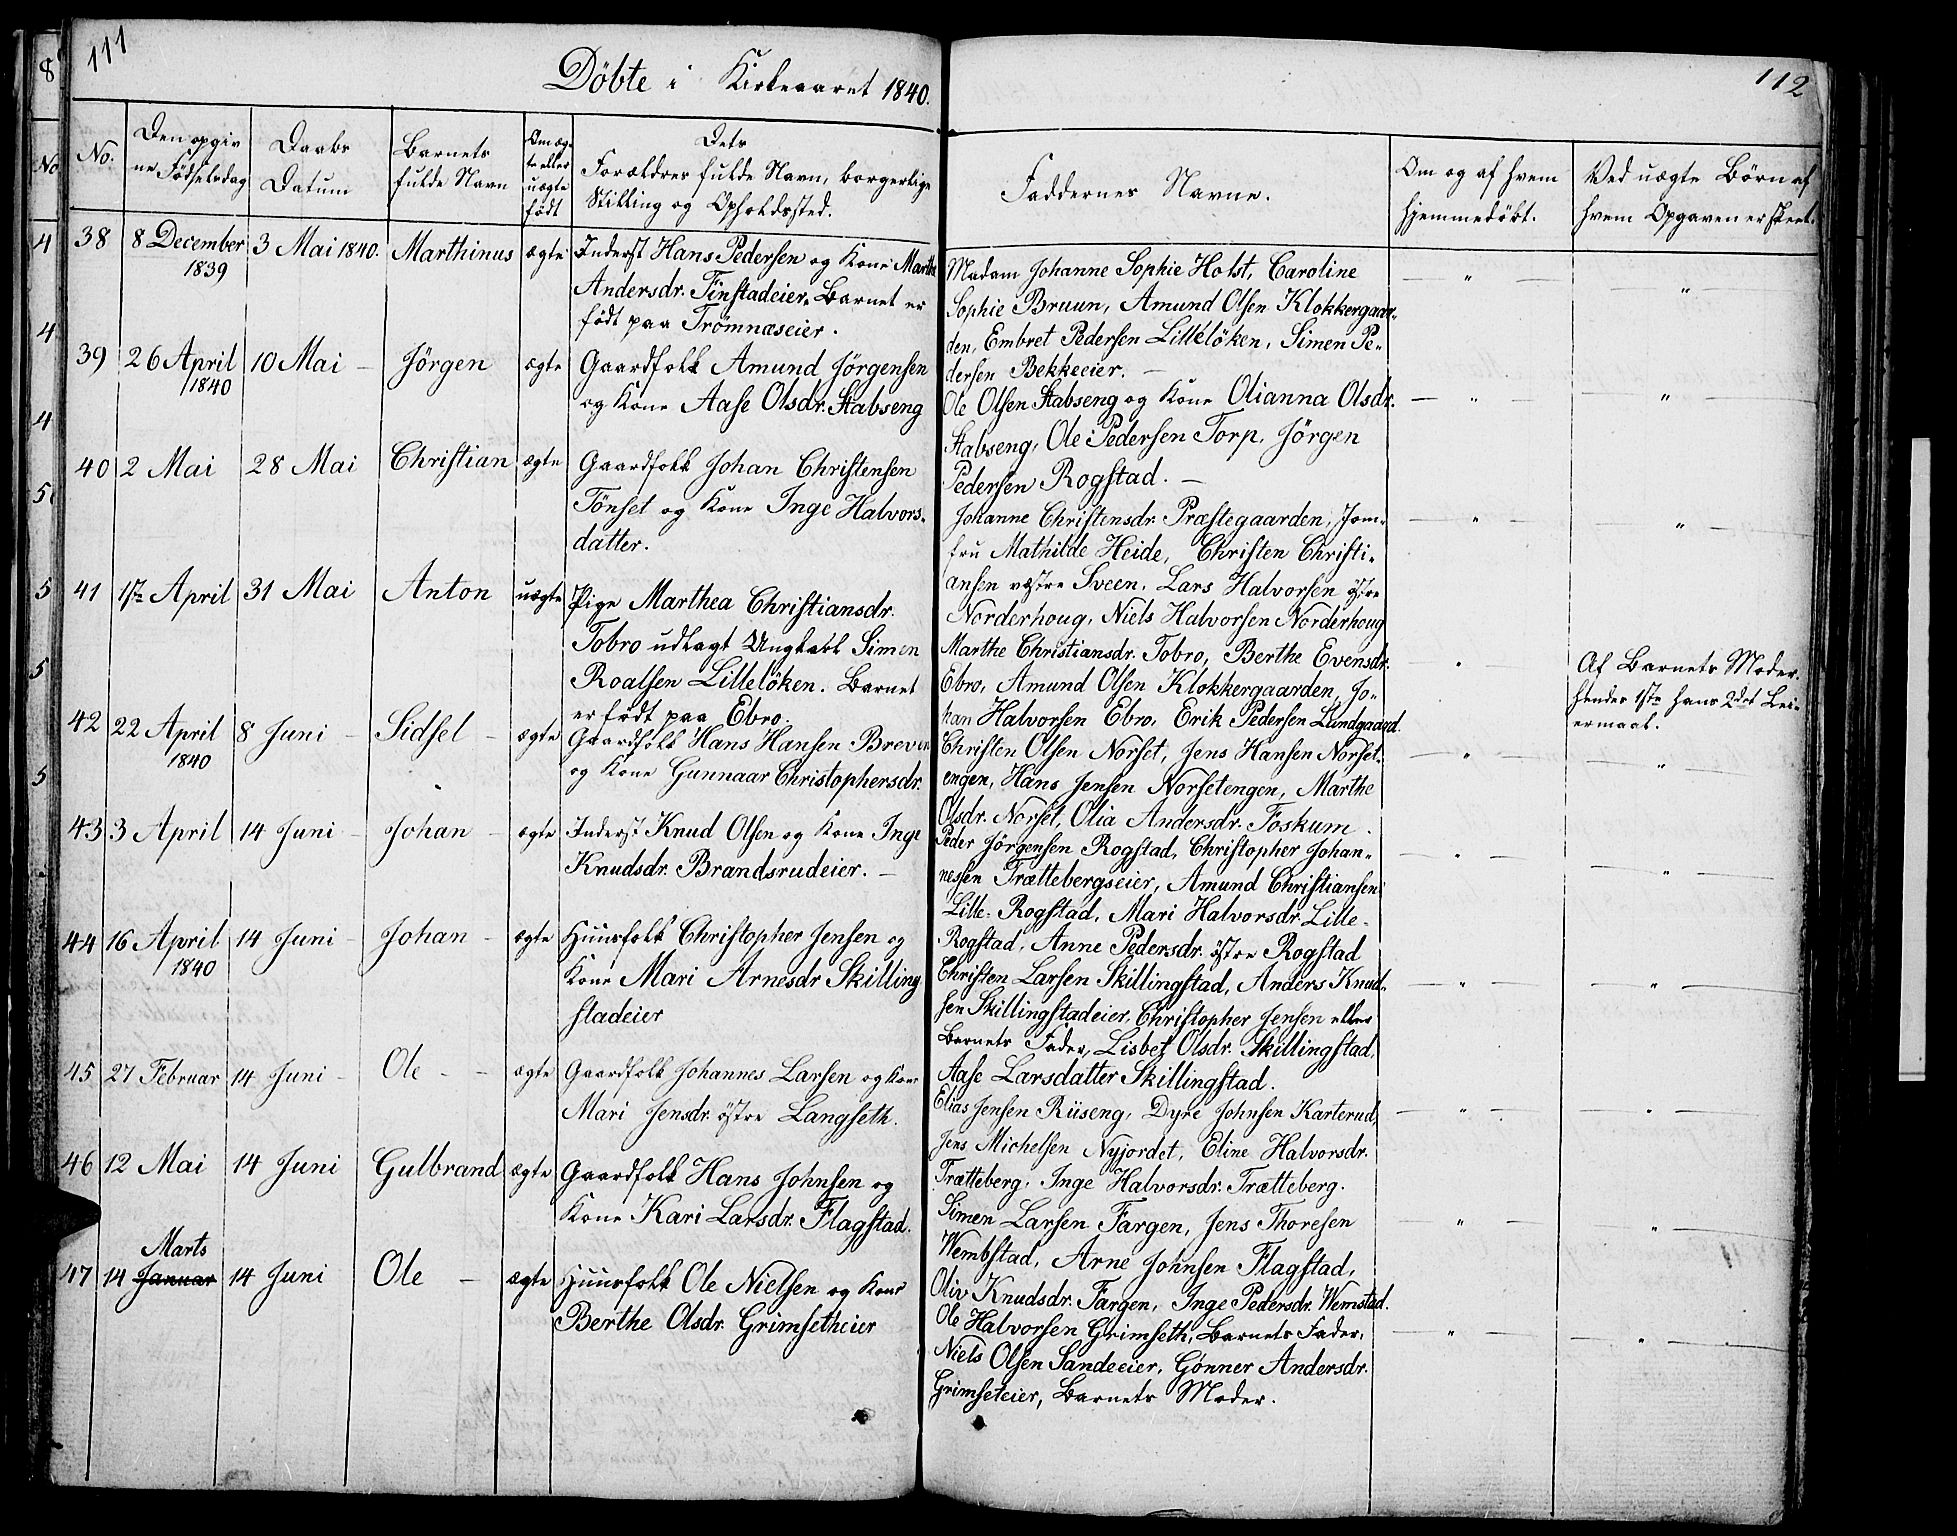 111
Döbte i Kirkeaaret 1840.
No.
Den opgiv
ne Födselsdag
Daabs
Datum
Barnets
fulde Navn
Om æg-
te eller
uægte
födt
Dets
Forældres fulde Navn, borgerlige
Stilling og Opholdssted.
38 8 December 3 Mai 1840. Marthinus ægte Inderst Hans Pedersen og Kone Marthe
1839
Andersdr. Finstadeier. Barnet er
födt paa Trömnæseier.
39 26 April 10 Mai – Jörgen ægte Gaardfolk Amund Jörgensen
1840
og Kone Aase Olsdr. Stabseng
40 2 Mai 28 Mai Christian ægte Gaardfolk Johan Christensen
Tönset og Kone Inge Halvors-
datter.
41 1ste April 31 Mai Anton uægte Pige Marthea Christiansdr.
Tobro udlagt Ungkarl Simen
Roalsen Lillelöken. Barnet
er födt paa Ebro.
42 22 April 8 Juni – Sidsel – ægte Gaardfolk Hans Hansen Breven
1840
og Kone Gunnaar Christophersdr.
43 3 April 14 Juni – Johan – ægte Inderst Knud Olsen og Kone Inge
Knudsdr. Brandsrudeier. –
44 16 April 14 Juni – Johan – ægte Huusfolk Christopher Jensen og
1840
Kone Mari Arnesdr Skilling
stadeier
45 27 Februar 14 Juni – Ole – – ægte Gaardfolk Johannes Larsen og Kone
Mari Jensdr. östre Langseth.
46 12 Mai 14 Juni Gulbrand ægte Gaardfolk Hans Johnsen og
Kone Kari Larsdr. Flagstad.
Marts
47 14 Januar 14 Juni Ole – ægte Huusfolk Ole Nielsen og Kone
Berthe Olsdr. Grimsetheier
112
Faddernes Navne.
Om og af hvem
hjemmedöbt.
Ved uægte Börn af
hvem Opgaven er skeet.
Madam Johanne Sophie Holst, Caroline
Sophie Bruun, Amund Olsen Klokkergaar-
den, Embret Pedersen Lillelöken, Simen Pe-
dersen Bekkeeier. –
Ole Olsen Stabseng og Kone Olianna Olsdr.
Stabseng, Ole Pedersen Torp, Jörgen
Pedersen Rogstad. –
Johanne Christensdr. Præstegaarden, Jom-
fru Mathilde Heide, Christen Christi-
ansen vestre Sveen, Lars Halvorsen östre
Norderhoug, Niels Halvorsen Norderhoug
Marthe Christiansdr. Tobro, Berthe Evensdr.
Ebro, Amund Olsen Klokkergaarden, Jo-
han Halvorsen Ebro, Erik Pedersen Lundgaard.
Af Barnets Moder.
Hendes 1ste hans 2det Lei-
ermaal.
Christen Olsen Norset, Jens Hansen Norset-
engen, Hans Jensen Norsetengen, Marthe
Olsdr. Norset, Olia Andersdr. Foskum.
Peder Jörgensen Rogstad, Christopher Johan-
nessen Trættebergseier, Amund Christiansen
Lille-Rogstad, Mari Halvorsdr. Lille-
Rogstad, Anne Pedersdr. östre Rogstad
Christen Larsen Skillingstad, Anders Knud-
sen Skillingstadeier, Christopher Jensen eller
Barnets Fader, Lisbet Olsdr. Skillingstad,
Aase Larsdatter Skillingstad.
Elias Jensen Riiseng, Dyre Johnsen Karterud,
Jens Michelsen Nyjordet, Eline Halvorsdr.
Trætteberg, Inge Halvorsdr. Trætteberg.
Simen Larsen Fargen, Jens Thoresen
Wembstad, Arne Johnsen Flagstad,
Oliv Knudsdr. Fargen, Inge Pedersdr. Wemstad.
Ole Halvorsen Grimseth, Barnets Fader,
Niels Olsen Sandeeier, Gönner Andersdr.
Grimseteier, Barnets Moder.
8
No
4
4
4
5
5
5
5